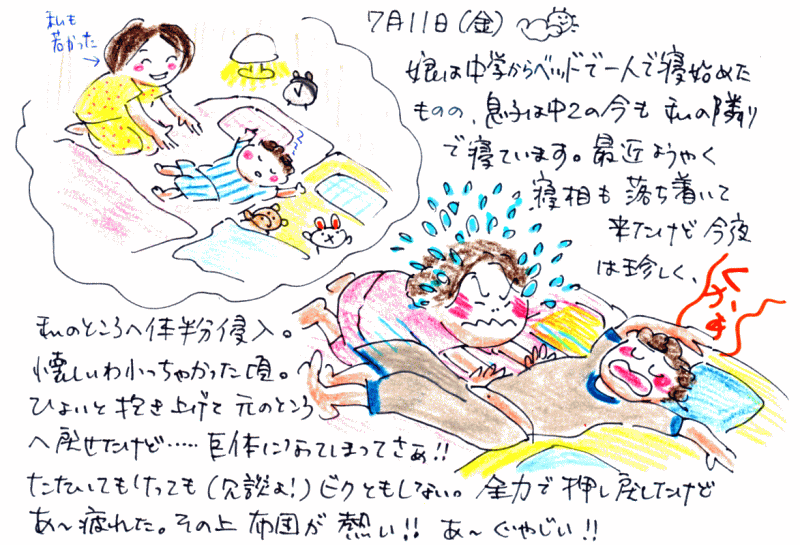 私も
若かった
7月11日(金)
娘は中学からベッドで一人で寝始めた
ものの、息子は中2の今も 私の隣り
で寝ています。最近ようやく
寝相も 落ち着いて
来たけど 今夜
は珍しく、
私のところへ体半分侵入。
懐しいわ 小っちゃかった頃。
ひょいと 抱き上げて 元のところ
へ戻せたけど…… 巨体になってしまってさぁ!!
たたいてもけっても(冗談よ!)ビクともしない。全力で 押し戻したけど
あ〜疲れた。その上 布団が 熱い!! あ〜ぐやじい!!